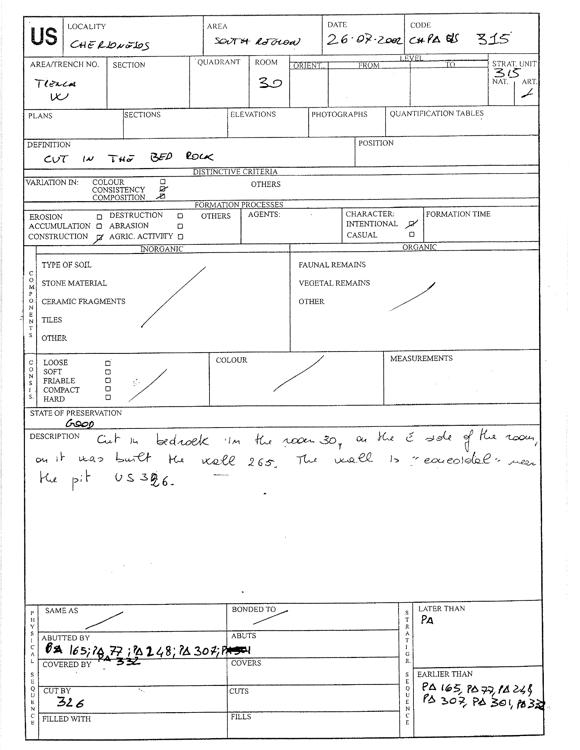 US
LOCALITY
CHERSONESOS
AREA
SOUTH REGION
DATE
26.07.2002
CODE
CHPA 315
AREA/TRENCH NO.
W
SECTION
QUADRANT
ROOM
30
LEVEL
ORIENT. FROM TO
STRAT. UNIT
315
NAT. ART.
PLANS
SECTIONS
ELEVATIONS
PHOTOGRAPHS
QUANTIFICATION TABLES
DEFINITION
CUT IN THE BED ROCK
POSITION
DISTINCTIVE CRITERIA
VARIATION IN: COLOUR OTHERS
CONSISTENCY
COMPOSITION
FORMATION PROCESSES
EROSION DESTRUCTION OTHERS
ACCUMULATION ABRASION
CONSTRUCTION AGRIC. ACTIVITY
AGENTS:
CHARACTER:
INTENTIONAL
CASUAL
FORMATION TIME
COMPONENTS
INORGANIC
TYPE OF SOIL
STONE MATERIAL
CERAMIC FRAGMENTS
TILES
OTHER
ORGANIC
FAUNAL REMAINS
VEGETAL REMAINS
OTHER
CONSIS.
LOOSE
SOFT
FRIABLE
COMPACT
HARD
COLOUR
MEASUREMENTS
STATE OF PRESERVATION
GOOD
DESCRIPTION Cut in bedrock in the room 30, on the E side of the room,
on it was built the wall 265. The wall is near
the pit US 326.
PHYSICAL SEQUENCE
SAME AS
BONDED TO
ABUTTED BY
165; PA 77; PA 248; PA 307;
PA 332
ABUTS
COVERED BY
COVERS
CUT BY
326
CUTS
FILLED WITH
FILLS
STRATIGR. SEQUENCE
LATER THAN
PA
EARLIER THAN
PA 165, PA 77, PA 248,
PA 307, PA 301, PA 332